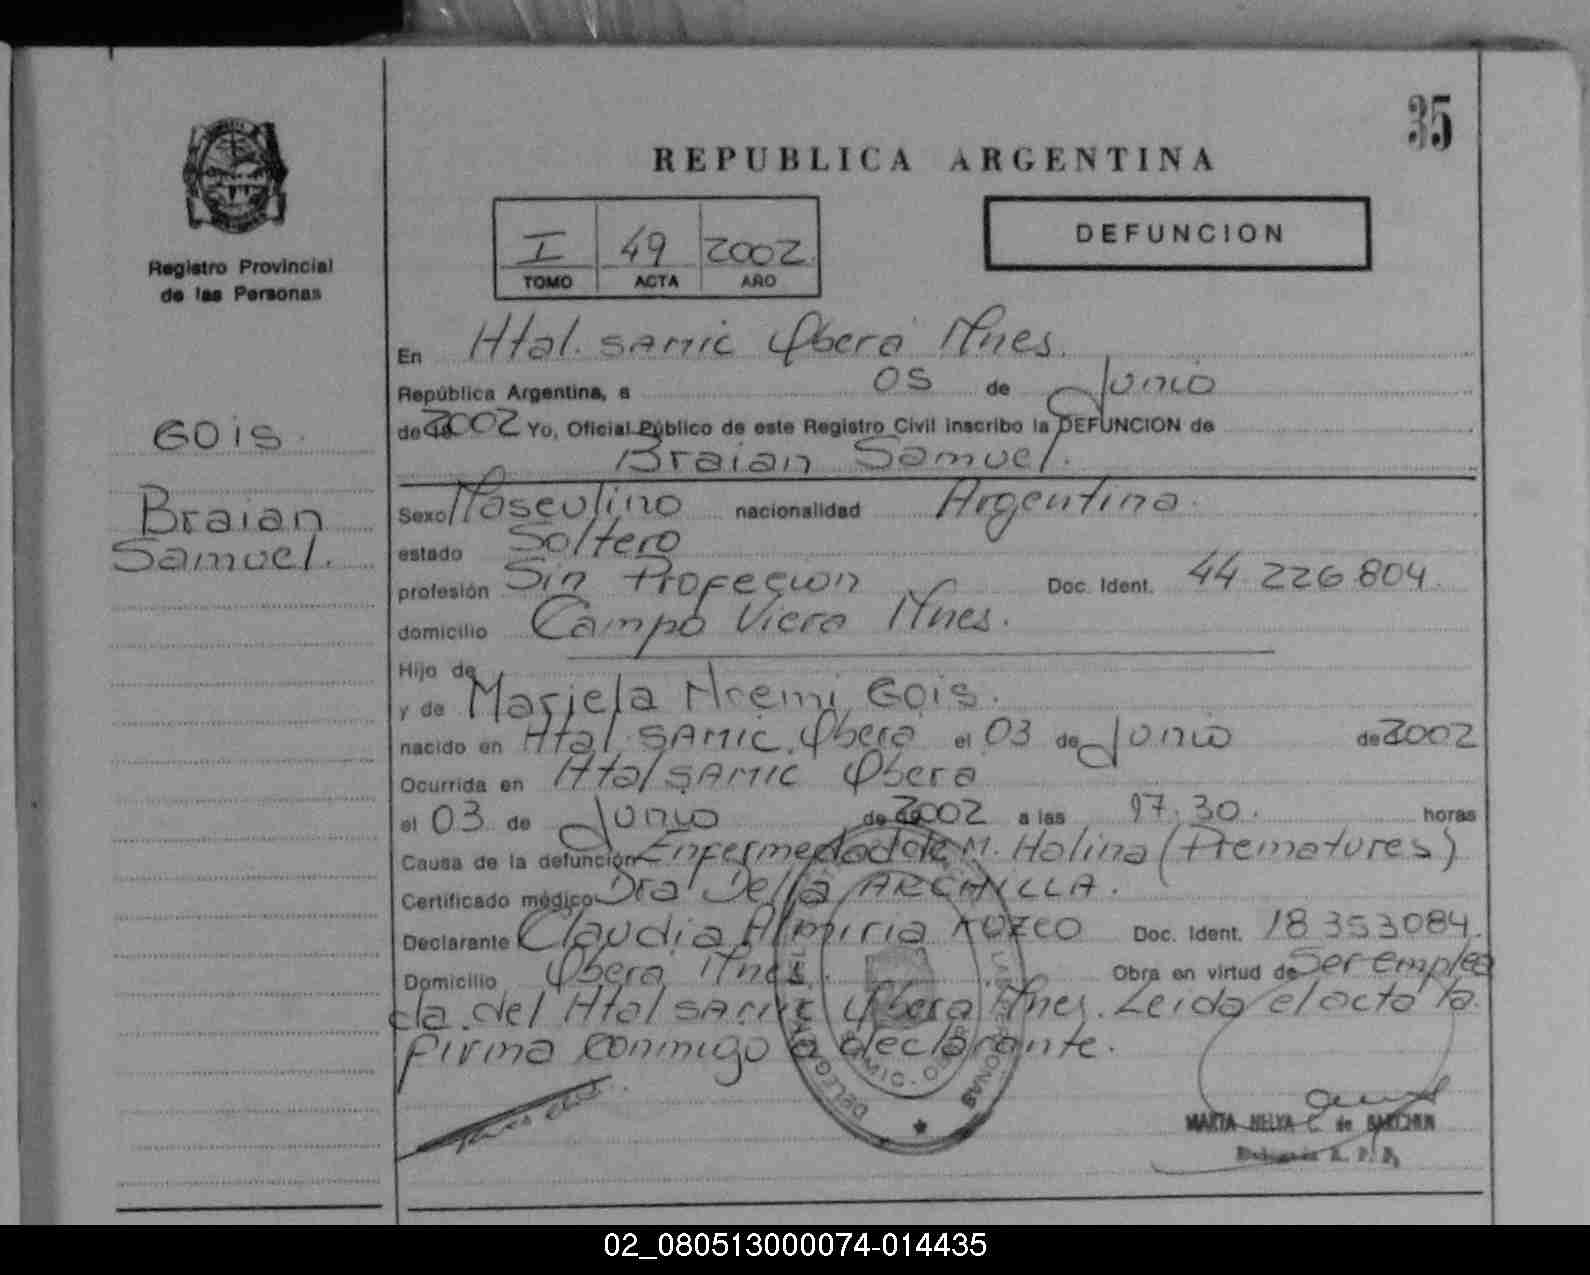 35
REPUBLICA ARGENTINA
I 49 2002
TOMO ACTA AÑO
DEFUNCION
Registro Provincial
de las Personas
GOIS.
Braian
Samuel.
En Htal. SAMIC Oberá Mnes.
República Argentina, a 05 de Junio
de 2002 Yo, Oficial Público de este Registro Civil inscribo la DEFUNCION de
Braian Samuel.
Sexo Masculino nacionalidad Argentina.
estado Soltero
profesión Sin Profecion Doc. Ident. 44 226 804.
domicilio Campo Viera Mnes.
Hijo de
y de Mariela Noemi Gois.
nacido en Htal SAMIC. Oberá el 03 de Junio de 2002
Ocurrida en Htal SAMIC Oberá
el 03 de Junio de 2002 a las 17.30. horas
Causa de la defunción Enfermedad de M. Halina (Prematures)
Certificado médico Dra Della ARCHILLA.
Declarante Claudia Almiria Doc. Ident. 18 353084.
Domicilio Oberá Mnes. Obra en virtud de Ser emplea
da del Htal SAMIC Oberá Mnes. Leida el acta la
firma conmigo a declarante.
DELEGA
LAS PERSONAS
MARTA NELYA C. de
R. P. P.
02_080513000074-014435